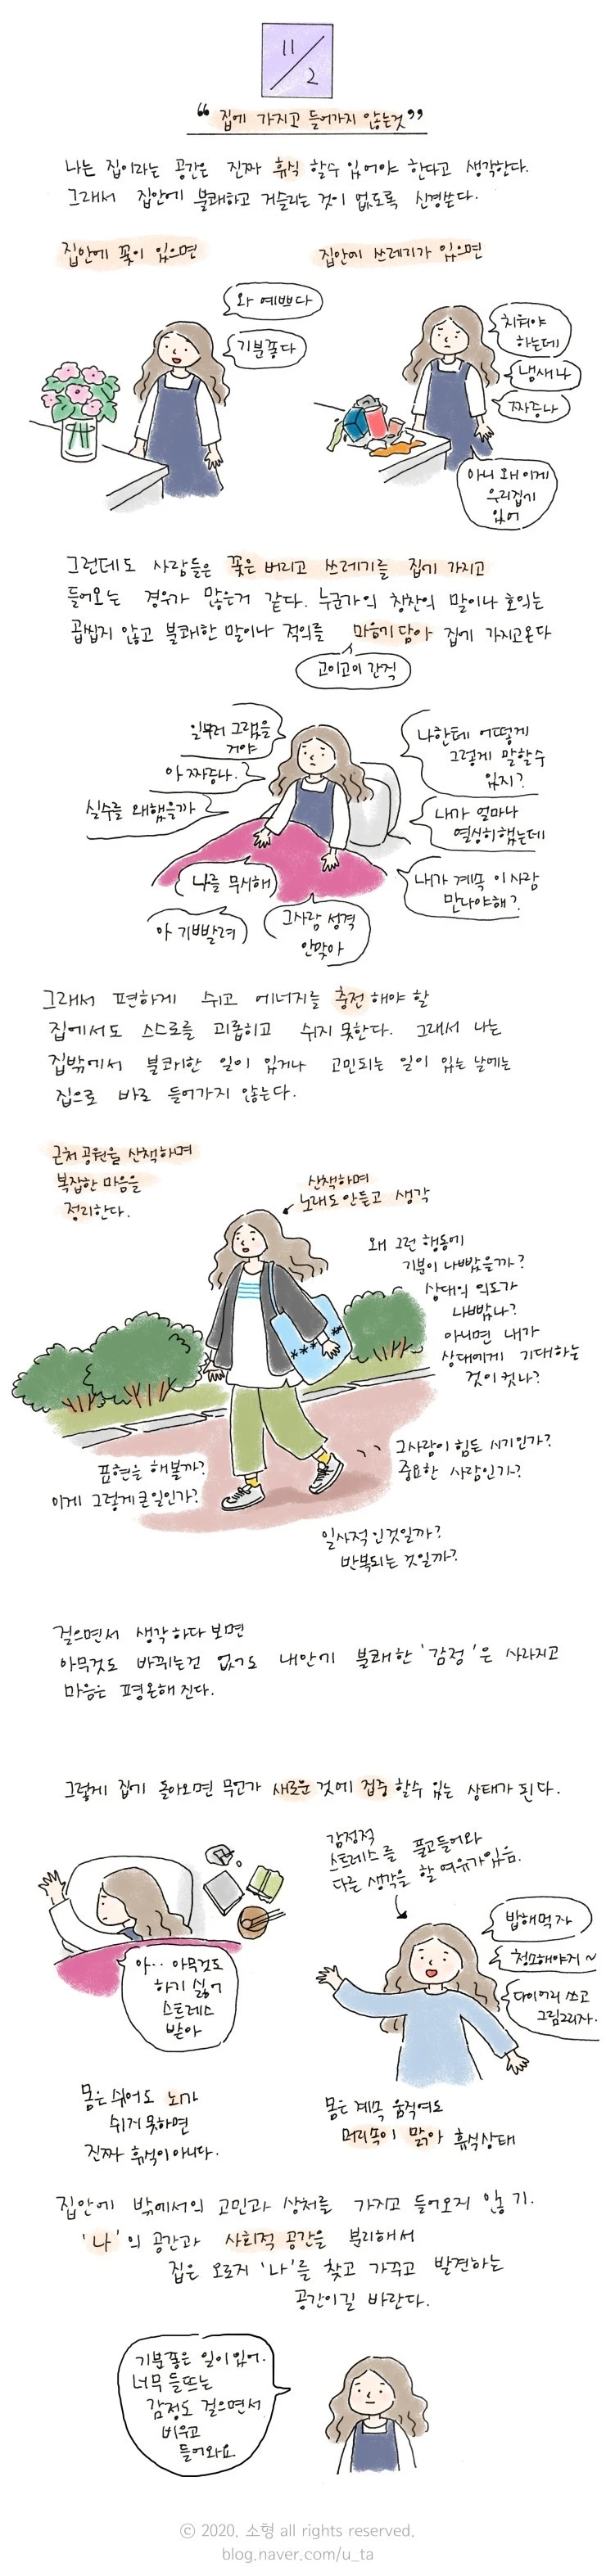 11/2
“집에 가지고 들어가지 않는것”
나는 집이라는 공간은 진짜 휴식 할수 있어야 한다고 생각한다.
그래서 집안에 불쾌하고 거슬리는 것이 없도록 신경쓴다.
집안에 꽃이 있으면
와 예쁘다
기분좋다
집안에 쓰레기가 있으면
치워야
하는데
냄새나
짜증나
아니 왜 이게
우리집에
있어
그런데도 사람들은 꽃은 버리고 쓰레기를 집에 가지고
들어오는 경우가 많은거 같다. 누군가의 칭찬의 말이나 호의는
곱씹지 않고 불쾌한 말이나 적의를 마음에 담아 집에 가지고온다
고이고이 간직
일부러 그랬을
거야
아 짜증나.
실수를 왜했을까
나를 무시해
아 기빨려
그사람 성격
안맞아
나한테 어떻게
그렇게 말할수
있지?
내가 얼마나
열심히했는데
내가 계속 이사람
만나야해?
그래서 편하게 쉬고 에너지를 충전 해야 할
집에서도 스스로를 괴롭히고 쉬지 못한다. 그래서 나는
집밖에서 불쾌한 일이 있거나 고민되는 일이 있는 날에는
집으로 바로 들어가지 않는다.
근처 공원을 산책하며
복잡한 마음을
정리한다.
산책하며
노래도 안듣고 생각
왜 그런 행동에
기분이 나빴을까?
상대의 의도가
나빴나?
아니면 내가
상대에게 기대하는
것이 컸나?
그사람이 힘든 시기인가?
중요한 사람인가?
표현을 해볼까?
이게 그렇게 큰일인가?
일시적인것일까?
반복되는 것일까?
걸으면서 생각하다 보면
아무것도 바뀌는건 없어도 내안에 불쾌한 '감정'은 사라지고
마음은 평온해 진다.
그렇게 집에 돌아오면 무언가 새로운 것에 집중 할수 있는 상태가 된다.
아.. 아무것도
하기 싫어
스트레스
받아
감정적
스트레스를 풀고들어와
다른 생각을 할 여유가있음.
밥해먹자
청소해야지~
다이어리 쓰고
그림그리자.
몸은 쉬어도 뇌가
쉬지 못하면
진짜 휴식이 아니다.
몸은 계속 움직여도
머리속이 맑아 휴식상태
집안에 밖에서의 고민과 상처를 가지고 들어오지 않기.
'나'의 공간과 사회적 공간을 분리해서
집은 오로지 '나'를 찾고 가꾸고 발견하는
공간이길 바란다.
기분좋은 일이 있어.
너무 들뜨는
감정도 걸으면서
비우고
들어와요
ⓒ 2020. 소형 all rights reserved.
blog.naver.com/u_ta